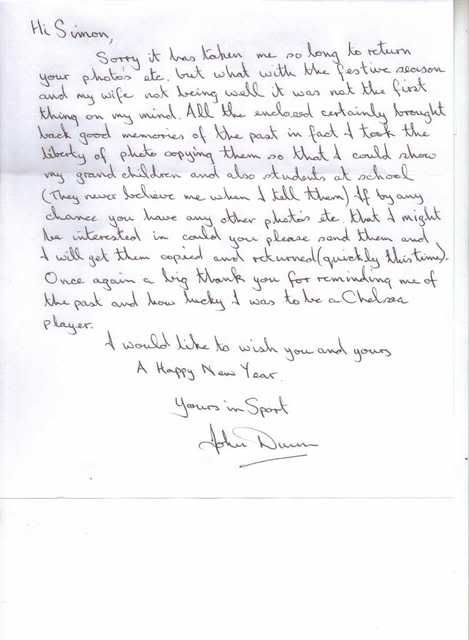 Hi Simon,
Sorry it has taken me so long to return
your photos etc. but what with the festive season
and my wife not being well it was not the first
thing on my mind. All the enclosed certainly brought
back good memories of the past in fact I took the
liberty of photo copying them so that I could show
my grand children and also students at school
(They never believe me when I tell them) If by any
chance you have any other photo's etc. that I might
be interested in could you please send them and
I will get them copied and returned (quickly this time).
Once again a big thank you for reminding me of
the past and how lucky I was to be a Chelsea
player.
I would like to wish you and yours
A Happy New Year.
Yours in Sport
John Dunn